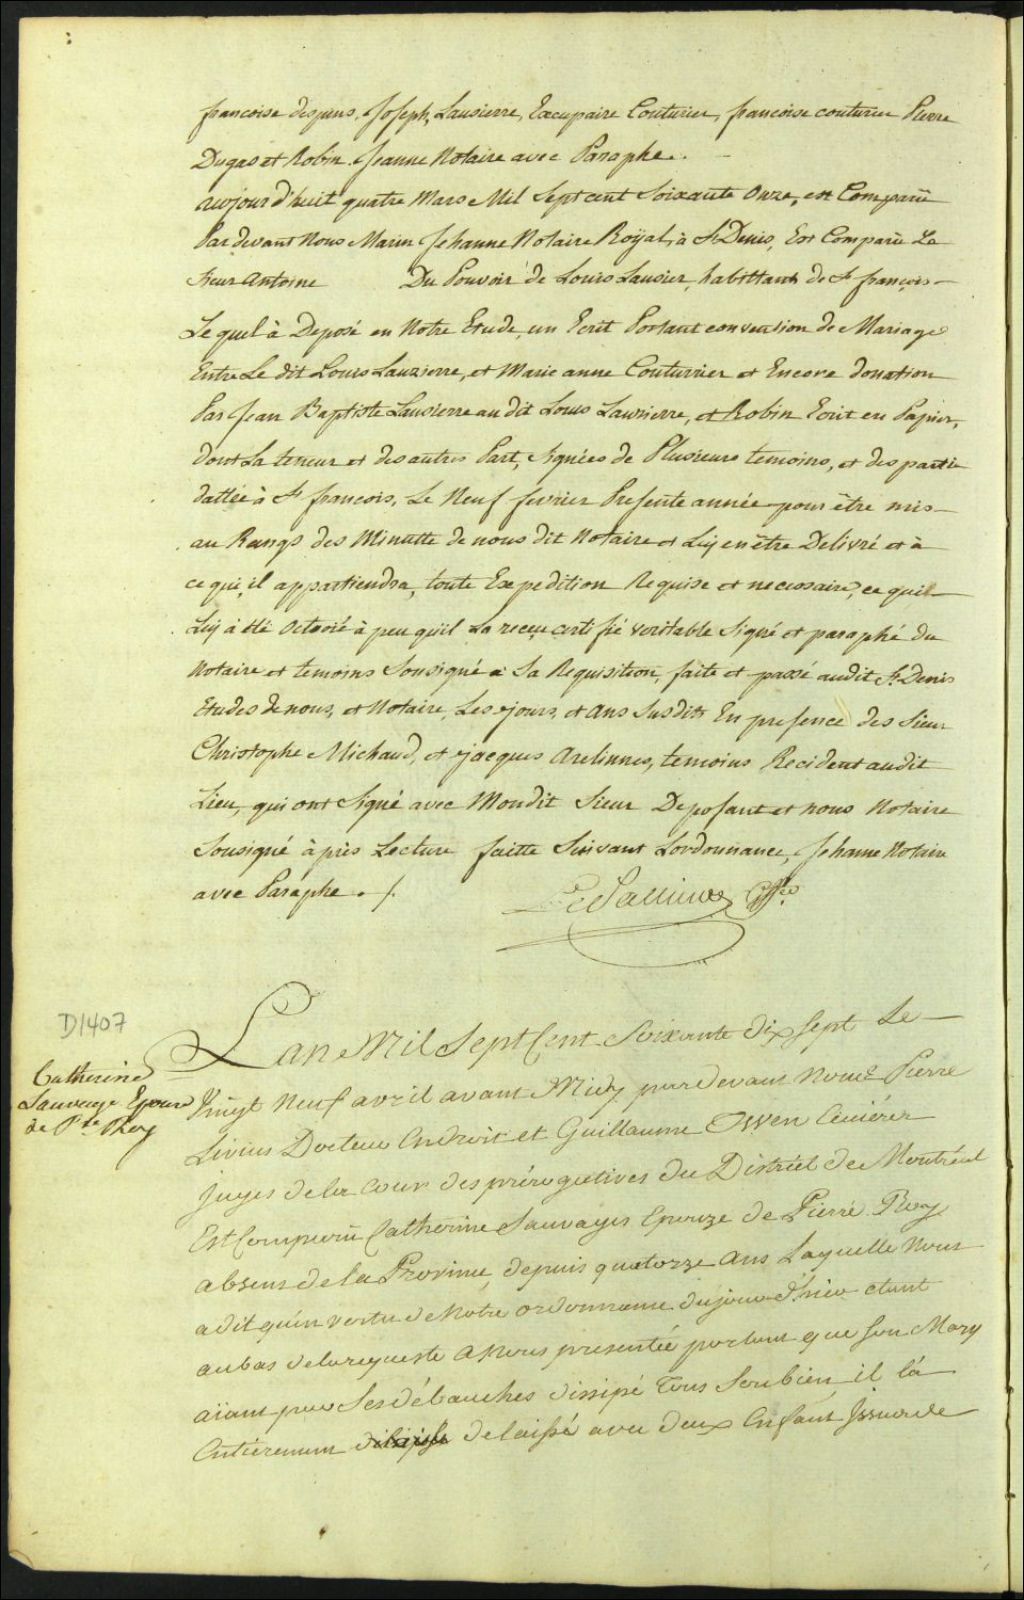 francoise desjeus, Joseph, Lausierre, Excupaire Couturier, francoise couturier Pierre
Dugas et Robin. Jeanne Notaire avec Paraphe.
aujourd'huit quatre Mars Mil Sept cent Soixante Onze, est Comparu
Par devant Nous Marin Jehanne Notaire Roÿal, à St Denis, Est Comparu Le
Sieur Antoine Du Pouvoir de Louis Lausier, habittant de St françois
Le quel à Deposé en Notre Etude, un Ecrit Portant convention de Mariage
Entre Le dit Louis Lauzierre, et Marie anne Couturrier et Encore donation
Par Jean Baptiste Lausierre au dit Louis Lauzierre, et Robin Ecrit en Papier,
dont La teneur et des autres Part, signées de Plusieurs temoins, et des partie
dattée à St francois, Le Neuf fevrier Presente année pour être mis
au Rangs des Minutte de nous dit Notaire et Luy en être Delivré et à
ce qui, il appartiendra, toute Expedition Requise et necessaire, ce quil
Luy à été Octroié à peu qu'il La receu certifié veritable Signé et paraphé du
Notaire et temoins Sousigné a Sa Requisition, faite et passé audit St Denis
Etudes de nous, et Notaire, Les jours, et ans Susdits En presence des Sieur
Christophe Michaud, et jacques Arelinnes, temoins Recident audit
Lieu, qui ont Signé avec Mondit Sieur Deposant et nous Notaire
Sousigné àprès Lecture faitte Suivant Lordonnance, Jehanne Notaire
avec Paraphe ./.
D1407
Catherine
Sauvage Epouse
de Pre Roy
Lan Mil Sept Cent Soixante dix sept Le
Vingt Neuf avril avant Midy pardevant Nous Pierre
Livius Docteur En droit et Guillaume Owen Ecuiérer
Juges de la Cour des prérogatives du District de Montréal
Est Comparüe Catherine Sauvages Epouze de Pierre Roy
absens de la Province, depuis quatorze ans Laquelle Nous
a dit quen vertu de Notre ordonnance dujourd'hier etant
au bas de la requeste a Nous presentée portant que Son Mary
aïant par Ses débauches dissipé Tous Son bien il l'a
Entierement delaissé avec deux Enfant Issue de